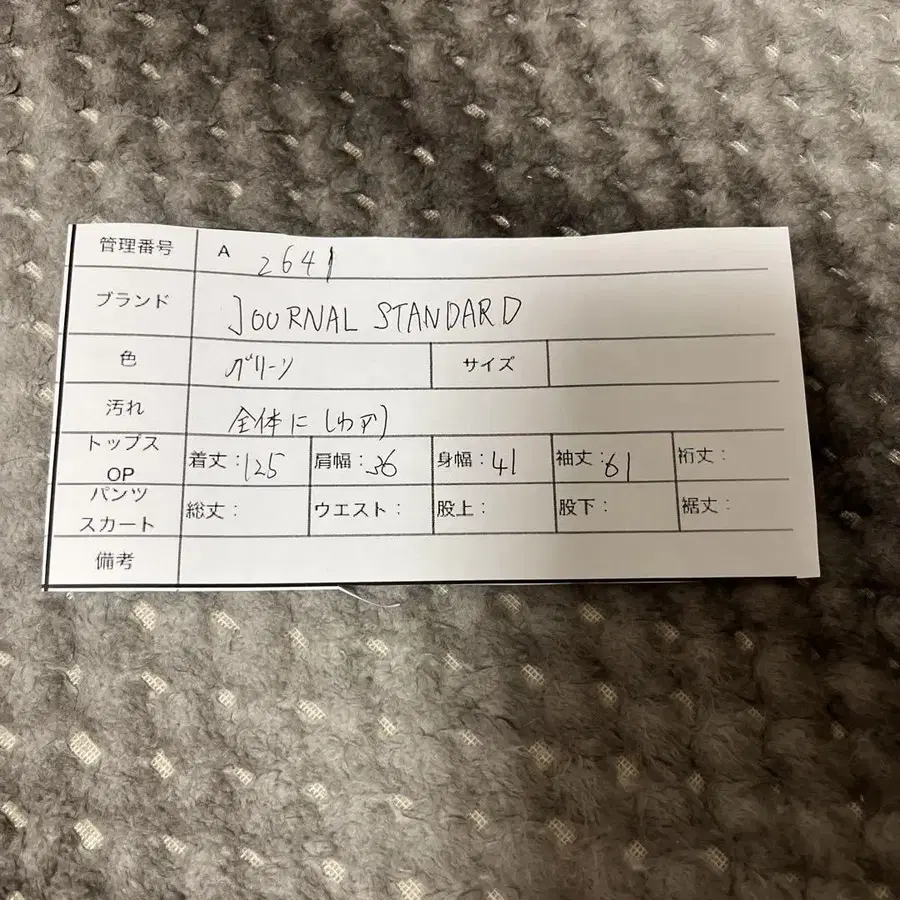 管理番号 A 2641
ブランド JOURNAL STANDARD
色 グリーン サイズ
汚れ 全体にしわアリ
トップス
OP 着丈:125 肩幅:36 身幅:41 袖丈:61 裄丈:
パンツ
スカート 総丈: ウエスト: 股上: 股下: 裾丈:
備考